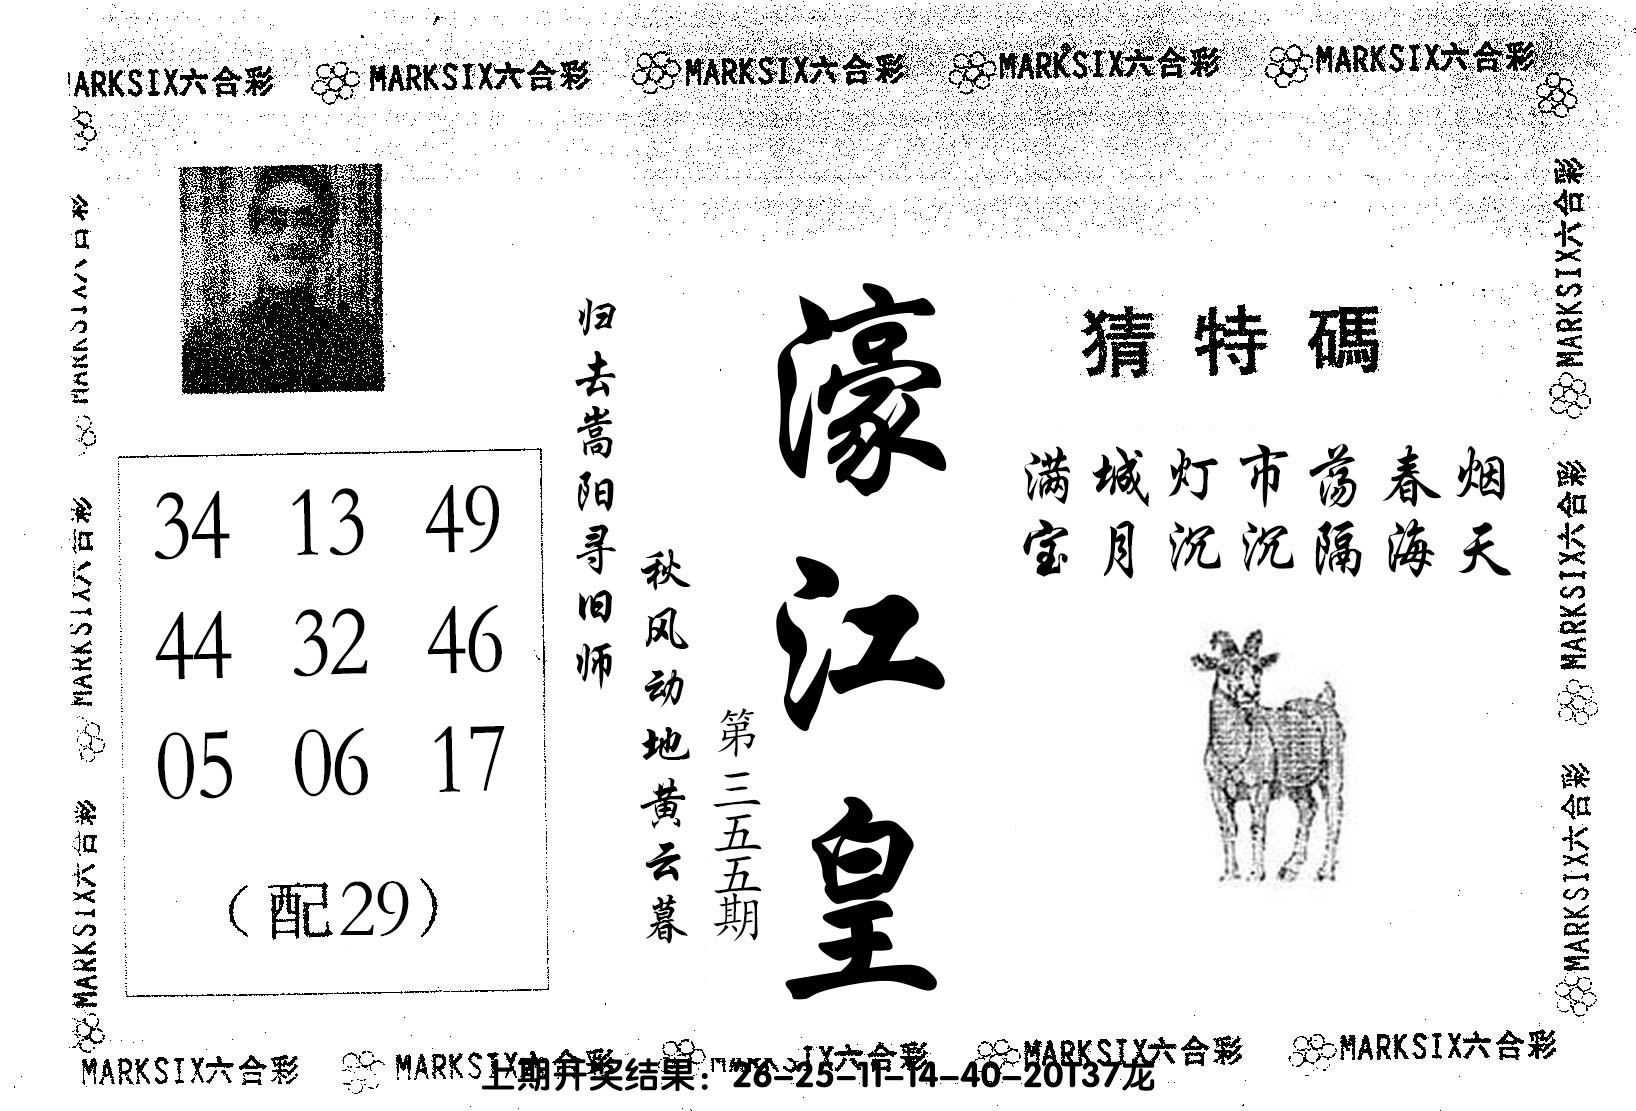 MARKSIX六合彩 MARKSIX六合彩 MARKSIX六合彩 MARKSIX六合彩 MARKSIX六合彩
MARKSIX六合彩
MARKSIX六合彩
MARKSIX六合彩
34 13 49
44 32 46
05 06 17
(配29)
归去嵩阳寻旧师
秋风动地黄云暮
第三五五期
濠江皇
猜特碼
满城灯市荡春烟
宝月沉沉隔海天
MARKSIX六合彩
MARKSIX六合彩
MARKSIX六合彩
MARKSIX六合彩 MARKSIX六合彩 IX六合彩 MARKSIX六合彩 MARKSIX六合彩
上期开奖结果：26-25-11-14-40-20T37龙